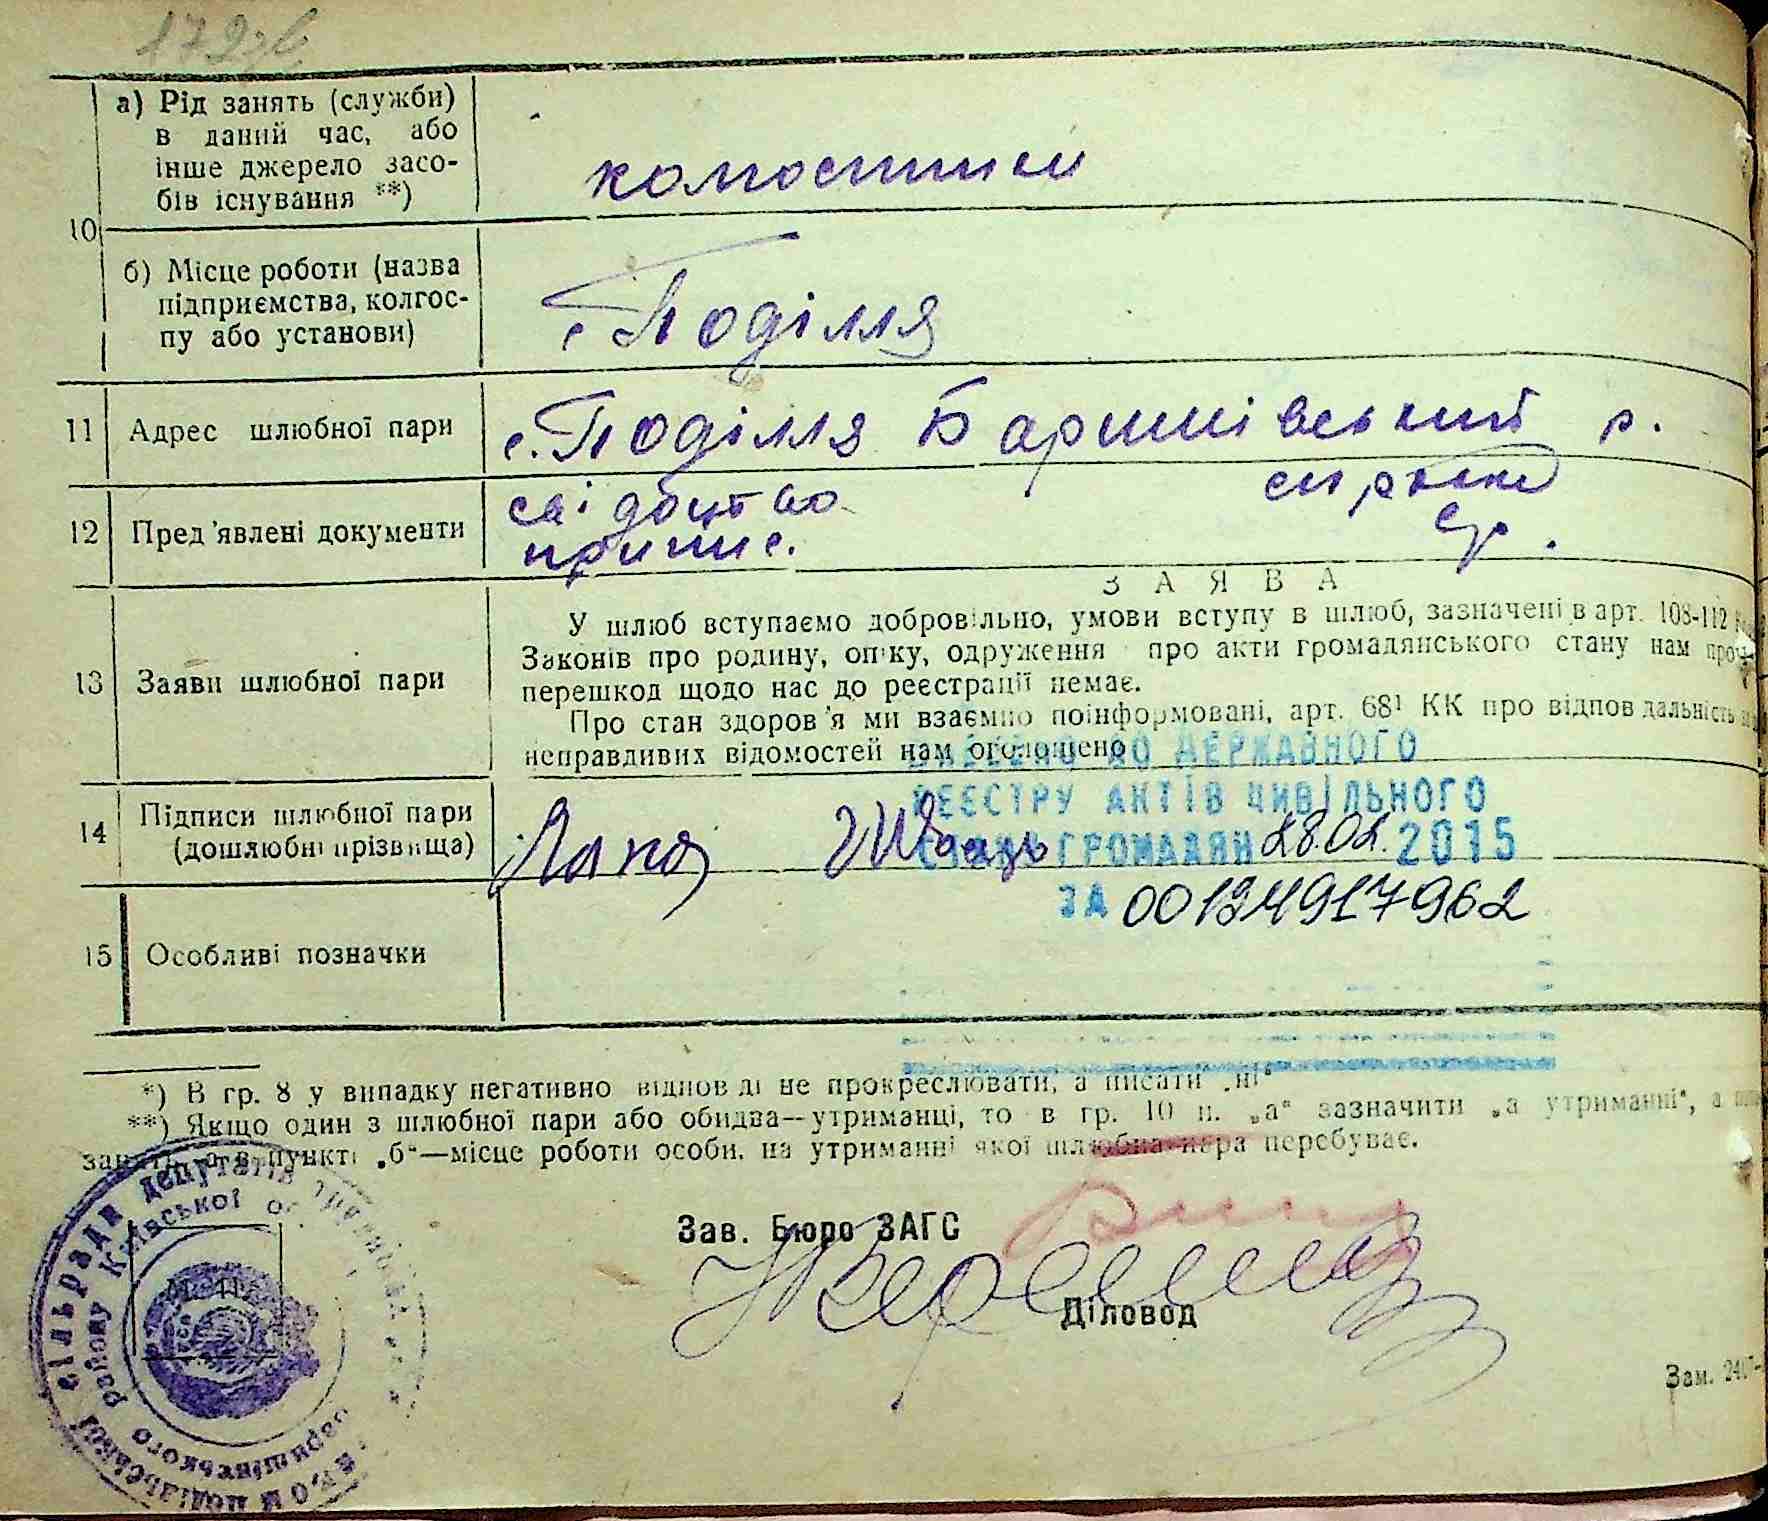 172зв
а) Рід занять (служби)
в даний час, або
інше джерело засо-
бів існування **)
10
б) Місце роботи (назва
підприємства, колгос-
пу або установи)
с Поділля
11 Адрес шлюбної пари с. Поділля Баришівський р.
12 Пред'явлені документи
свідоцтво
припис.
З А Я В А
13 Заяви шлюбної пари
У шлюб вступаємо добровільно, умови вступу в шлюб, зазначені в арт. 108-112
Законів про родину, опіку, одруження про акти громадянського стану нам
перешкод щодо нас до реєстрації немає.
Про стан здоров'я ми взаємно поінформовані, арт. 68¹ КК про відповідальність
неправдивих відомостей нам оголошено
ДО ДЕРЖАВНОГО
РЕЄСТРУ АКТІВ ЦИВІЛЬНОГО
ГРОМАДЯН 28.02. 2015
ЗА 00134917962
14 Підписи шлюбної пари
(дошлюбні прізвища)
15 Особливі позначки
*) В гр. 8 у випадку негативно відповіді не прокреслювати, а писати „ні“
**) Якщо один з шлюбної пари або обидва—утриманці, то в гр. 10 п. „а“ зазначити „а утриманні“, а
в пункті „б“—місце роботи особи, на утриманні якої шлюбна пара перебуває.
Зав. Бюро ЗАГС
Діловод
М. П.
сільради депутатів
району Київської
Зам.